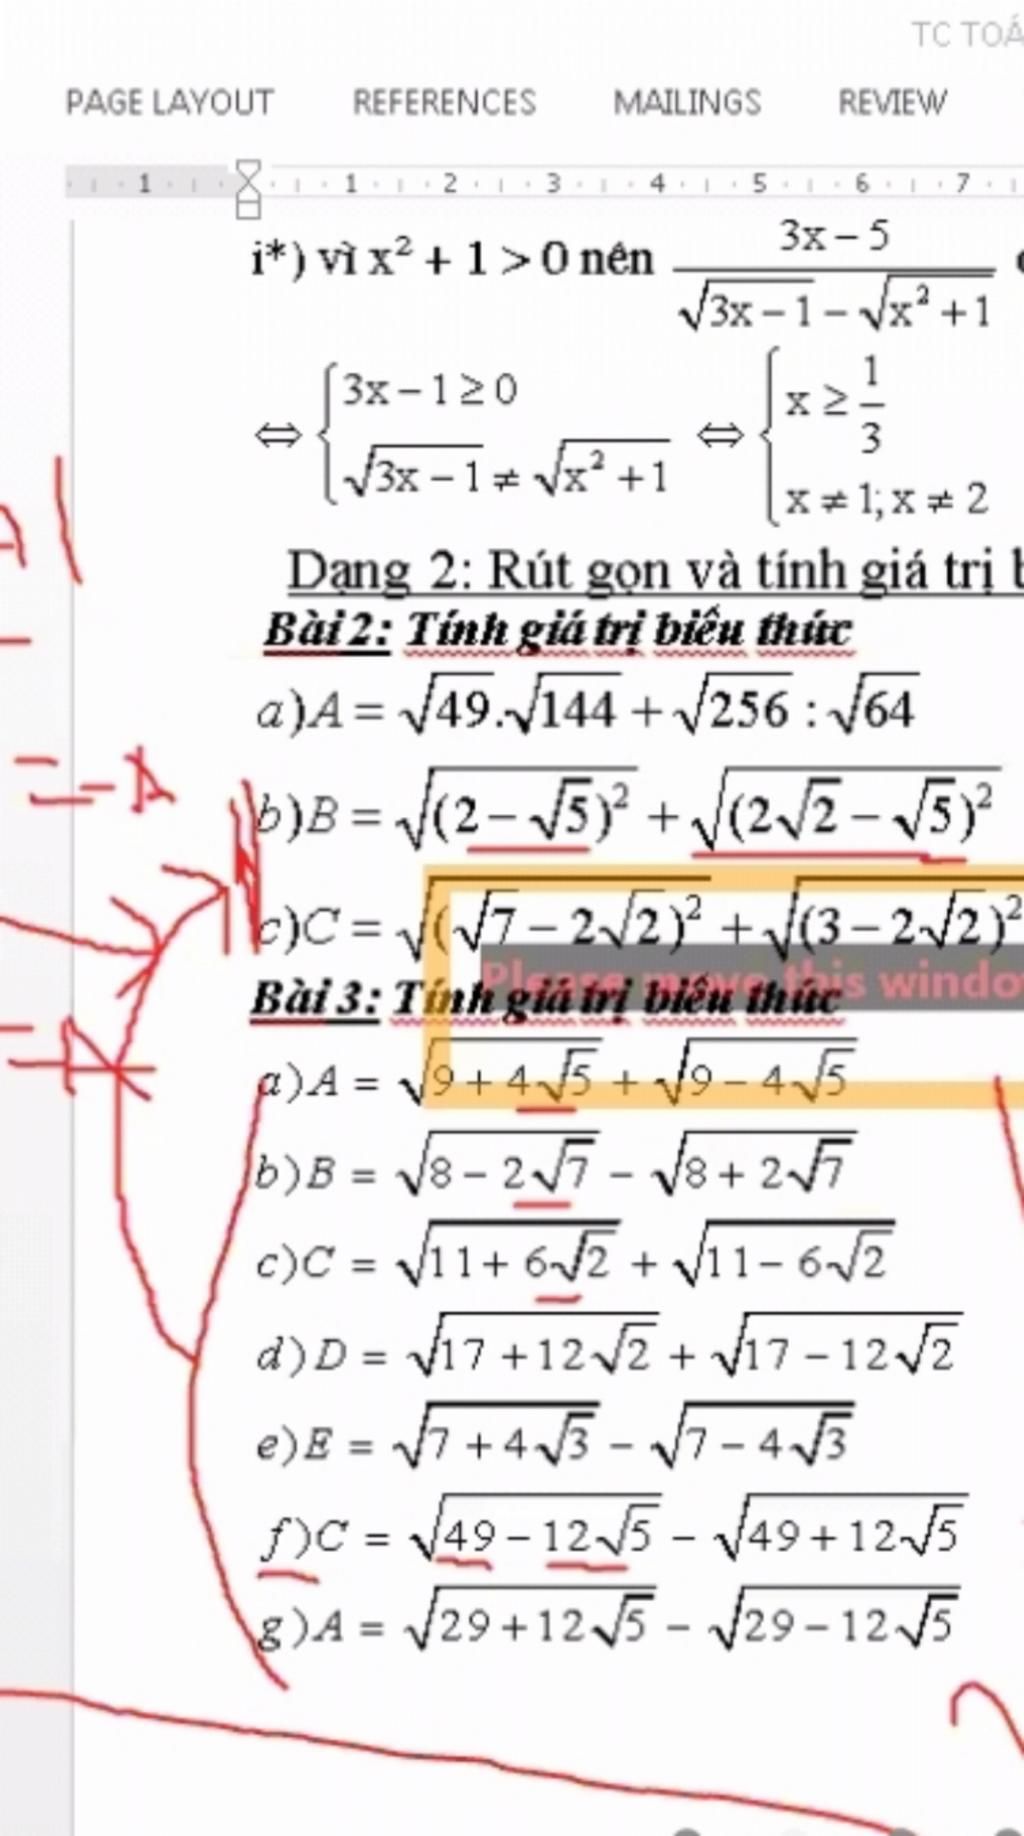 TC TOÁ
PAGE LAYOUT REFERENCES MAILINGS REVIEW
1 1 2 3 4 5 6 7
i*) vì x² + 1 > 0 nên (3x − 5)/(√(3x − 1) − √(x² + 1))
⇔ { 3x − 1 ≥ 0; √(3x − 1) ≠ √(x² + 1) ⇔ { x ≥ 1/3; x ≠ 1; x ≠ 2
Dạng 2: Rút gọn và tính giá trị b
Bài 2: Tính giá trị biểu thức
a)A = √49.√144 + √256 : √64
b)B = √((2 − √5)²) + √((2√2 − √5)²)
c)C = √((√7 − 2√2)²) + √((3 − 2√2)²)
Please move this windo
Bài 3: Tính giá trị biểu thức
a)A = √(9 + 4√5) + √(9 − 4√5)
b)B = √(8 − 2√7) − √(8 + 2√7)
c)C = √(11 + 6√2) + √(11 − 6√2)
d)D = √(17 + 12√2) + √(17 − 12√2)
e)E = √(7 + 4√3) − √(7 − 4√3)
f)C = √(49 − 12√5) − √(49 + 12√5)
g)A = √(29 + 12√5) − √(29 − 12√5)